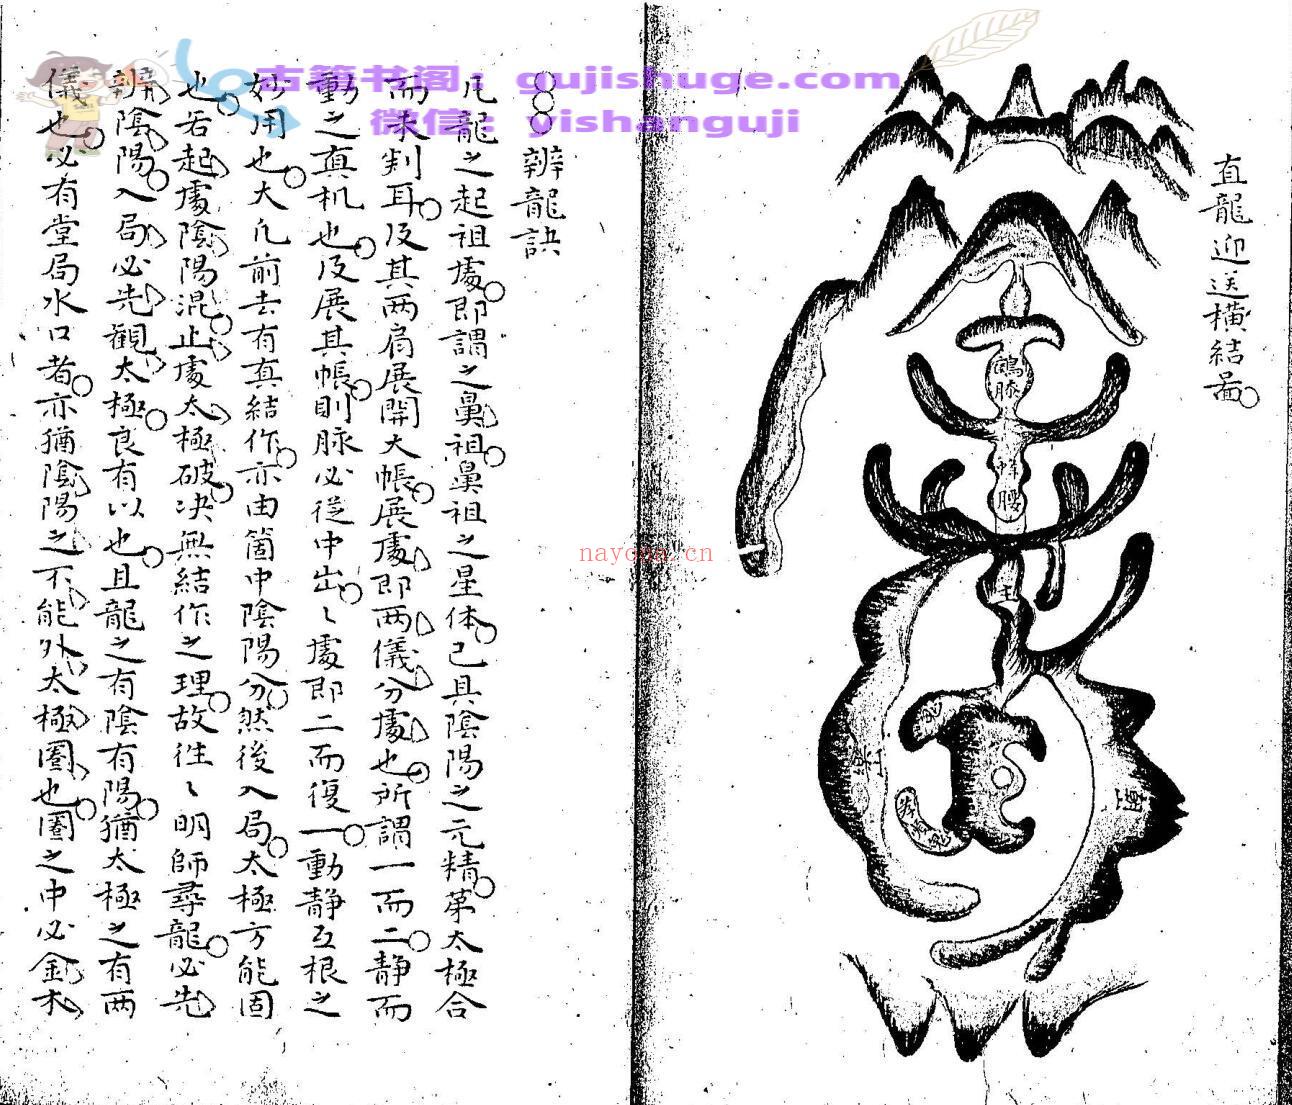 古籍书阁：gujishuge.com
微信：yishanguji
nayona.cn
直龍迎送橫結啚
鶴膝
蜂腰
主
案
朝
辨龍訣
凡龍之起祖處即謂之鼻祖鼻祖之星体已具陰陽之元精第太極合
而未判耳及其两扇展開大帳展處即两儀分處也所謂一而二靜而
動之真机也及展其帳則脉必從中出〻處即二而復一動靜互根之
妙用也大凡前去有真結作亦由箇中陰陽分然後入局太極方能固
也若起處陰陽混止處太極破决無結作之理故徃〻明師尋龍必先
辨陰陽入局必先觀太極良有以也且龍之有陰有陽猶太極之有两
儀也必有堂局水口者亦猶陰陽之不能外太極圈也圈之中必金木